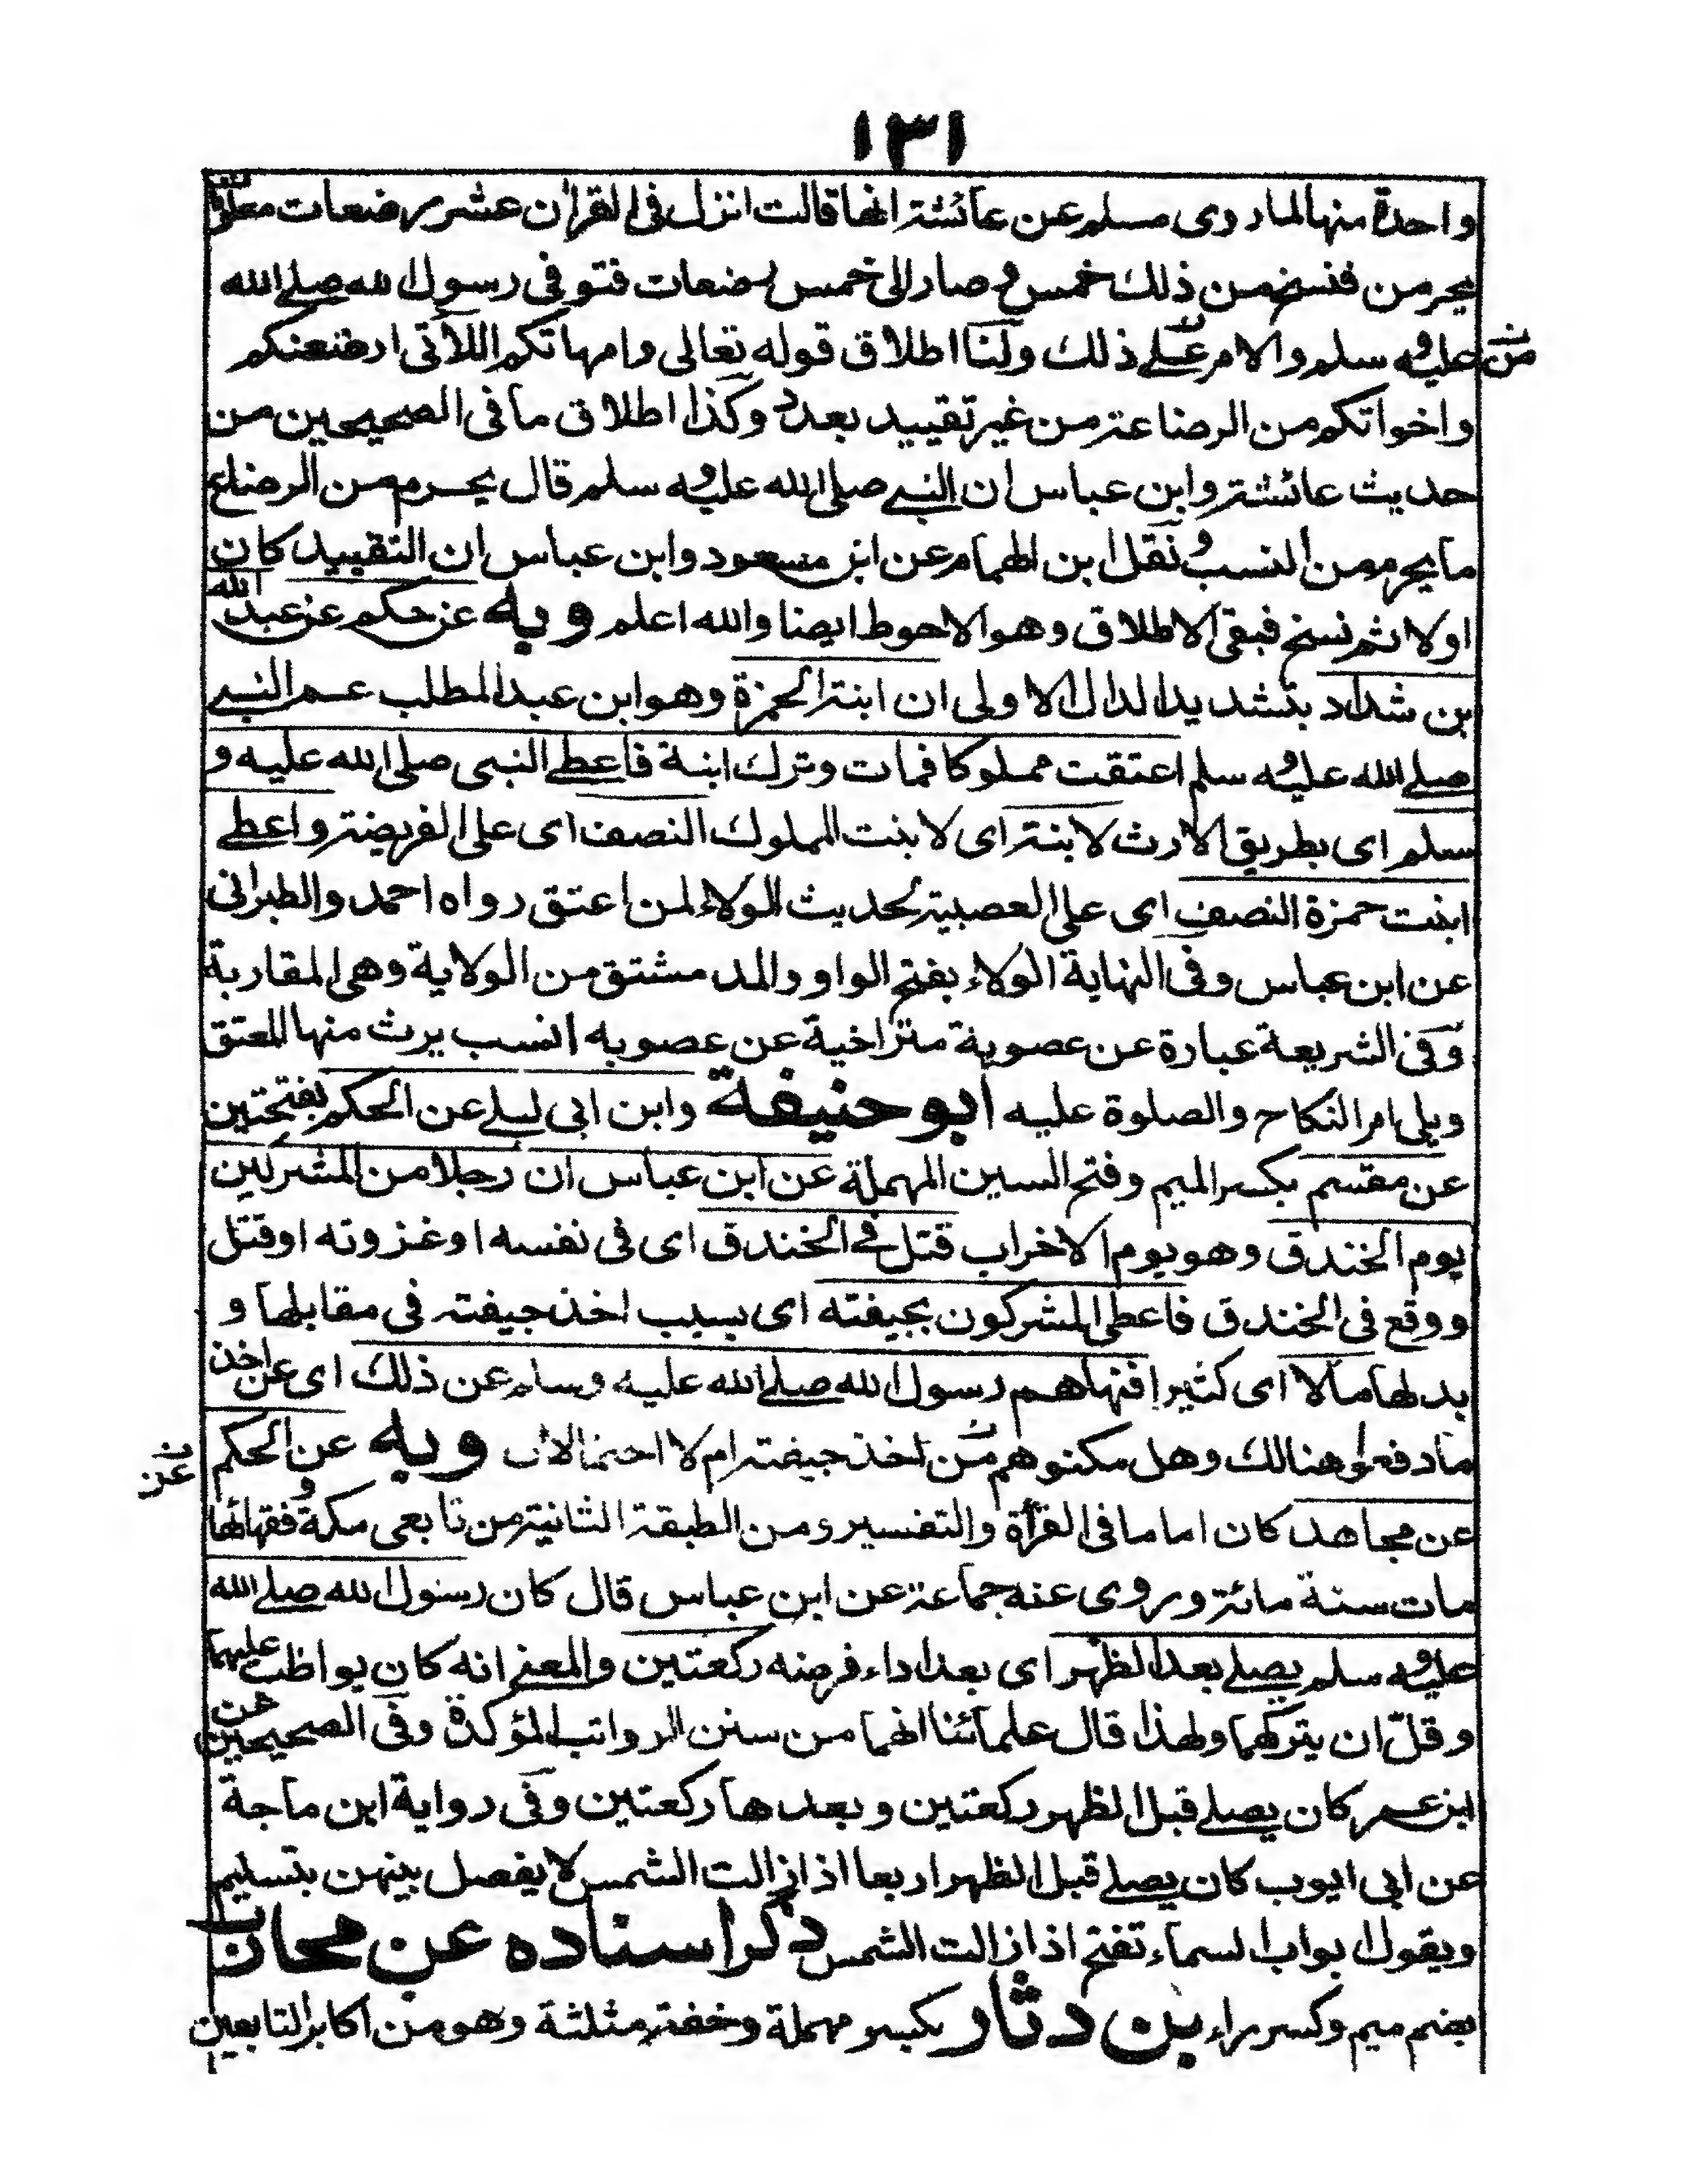 ١٣١
واحدة منها لما روى مسلم عن عائشة انها قالت انزل فى القرآن عشر رضعات
يحرمن فنسخ من ذلك خمس و صار الى خمس رضعات فتوفى رسول الله صلے الله
عليه و سلم والامر علے ذلك ولنا اطلاق قوله تعالى وامهاتكم اللاتى ارضعنكم
واخواتكم من الرضاعة من غير تقييد بعدد وكذا اطلاق ما فى الصحيحين من
حديث عائشة وابن عباس ان النبے صلى الله عليه و سلم قال يحرم من الرضاع
ما يحرم من النسب و نقل ابن الهمام عن ابن مسعود وابن عباس ان التقييد كان
اولا ثم نسخ فبقى الاطلاق وهو الاحوط ايضا والله اعلم وبه عن حكم عن عبد الله
بن شداد بتشديد الدال الاولى ان ابنة الحمزة وهو ابن عبد المطلب عم النبے
صلے الله عليه و سلم اعتقت مملوكا فمات وترك ابنة فاعطے النبى صلى الله عليه و
سلم اى بطريق الارث لابنة اى لابنت المملوك النصف اى على الفريضة واعطے
ابنت حمزة النصف اى على العصبية لحديث الولاء لمن اعتق رواه احمد والطبرانى
عن ابن عباس وفى النهاية الولاء بفتح الواو والمد مشتق من الولاية وهى المقاربة
وفى الشريعة عبارة عن عصوبة متراخية عن عصوبه انسب يرث منها المعتق
ويلى امر النكاح والصلوة عليه ابو حنيفة وابن ابى ليلے عن الحكم بفتحتين
عن مقسم بكسر الميم وفتح السين المهملة عن ابن عباس ان رجلا من المشركين
يوم الخندق وهو يوم الاخراب قتل فے الخندق اى فى نفسه او غزوته او قتل
ووقع فى الخندق فاعطى المشركون بجيفته اى بسبب اخذ جيفته فى مقابلها و
بدلها مالا اى كثيرا فنهاهم رسول الله صلے الله عليه وسلم عن ذلك اى عن اخذ
ما دفعوا هنالك وهل مكنوهم من اخذ جيفته ام لا احتمالان وبه عن الحكم
عن مجاهد كان اماما فى القرأة والتفسير ومن الطبقة الثانية من تابعى مكة و فقهائها
مات سنة مائة وروى عنه جماعة عن ابن عباس قال كان رسول الله صلے الله
عليه و سلم يصلے بعد الظهر اى بعد اداء فرضه ركعتين والمعنے انه كان يواظب عليهما
وقلّ ان يتركهما ولهذا قال علمائنا انهما من سنن الرواتب المؤكدة وفى الصحيحين عن
ابن عمر كان يصلے قبل الظهر ركعتين وبعدها ركعتين وفى رواية ابن ماجة
عن ابى ايوب كان يصلے قبل الظهر اربعا اذا زالت الشمس لا يفصل بينهن بتسليم
ويقول ابواب السماء تفتح اذا زالت الشمس ذكر اسناده عن محارب
بضم ميم وكسر راء بن دثار بكسر مهملة وخفة مثلثة وهو من اكابر التابعين